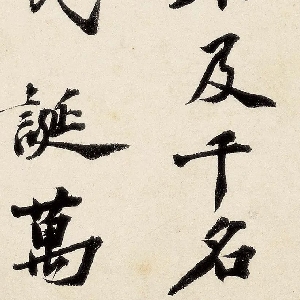 及千名
誕萬